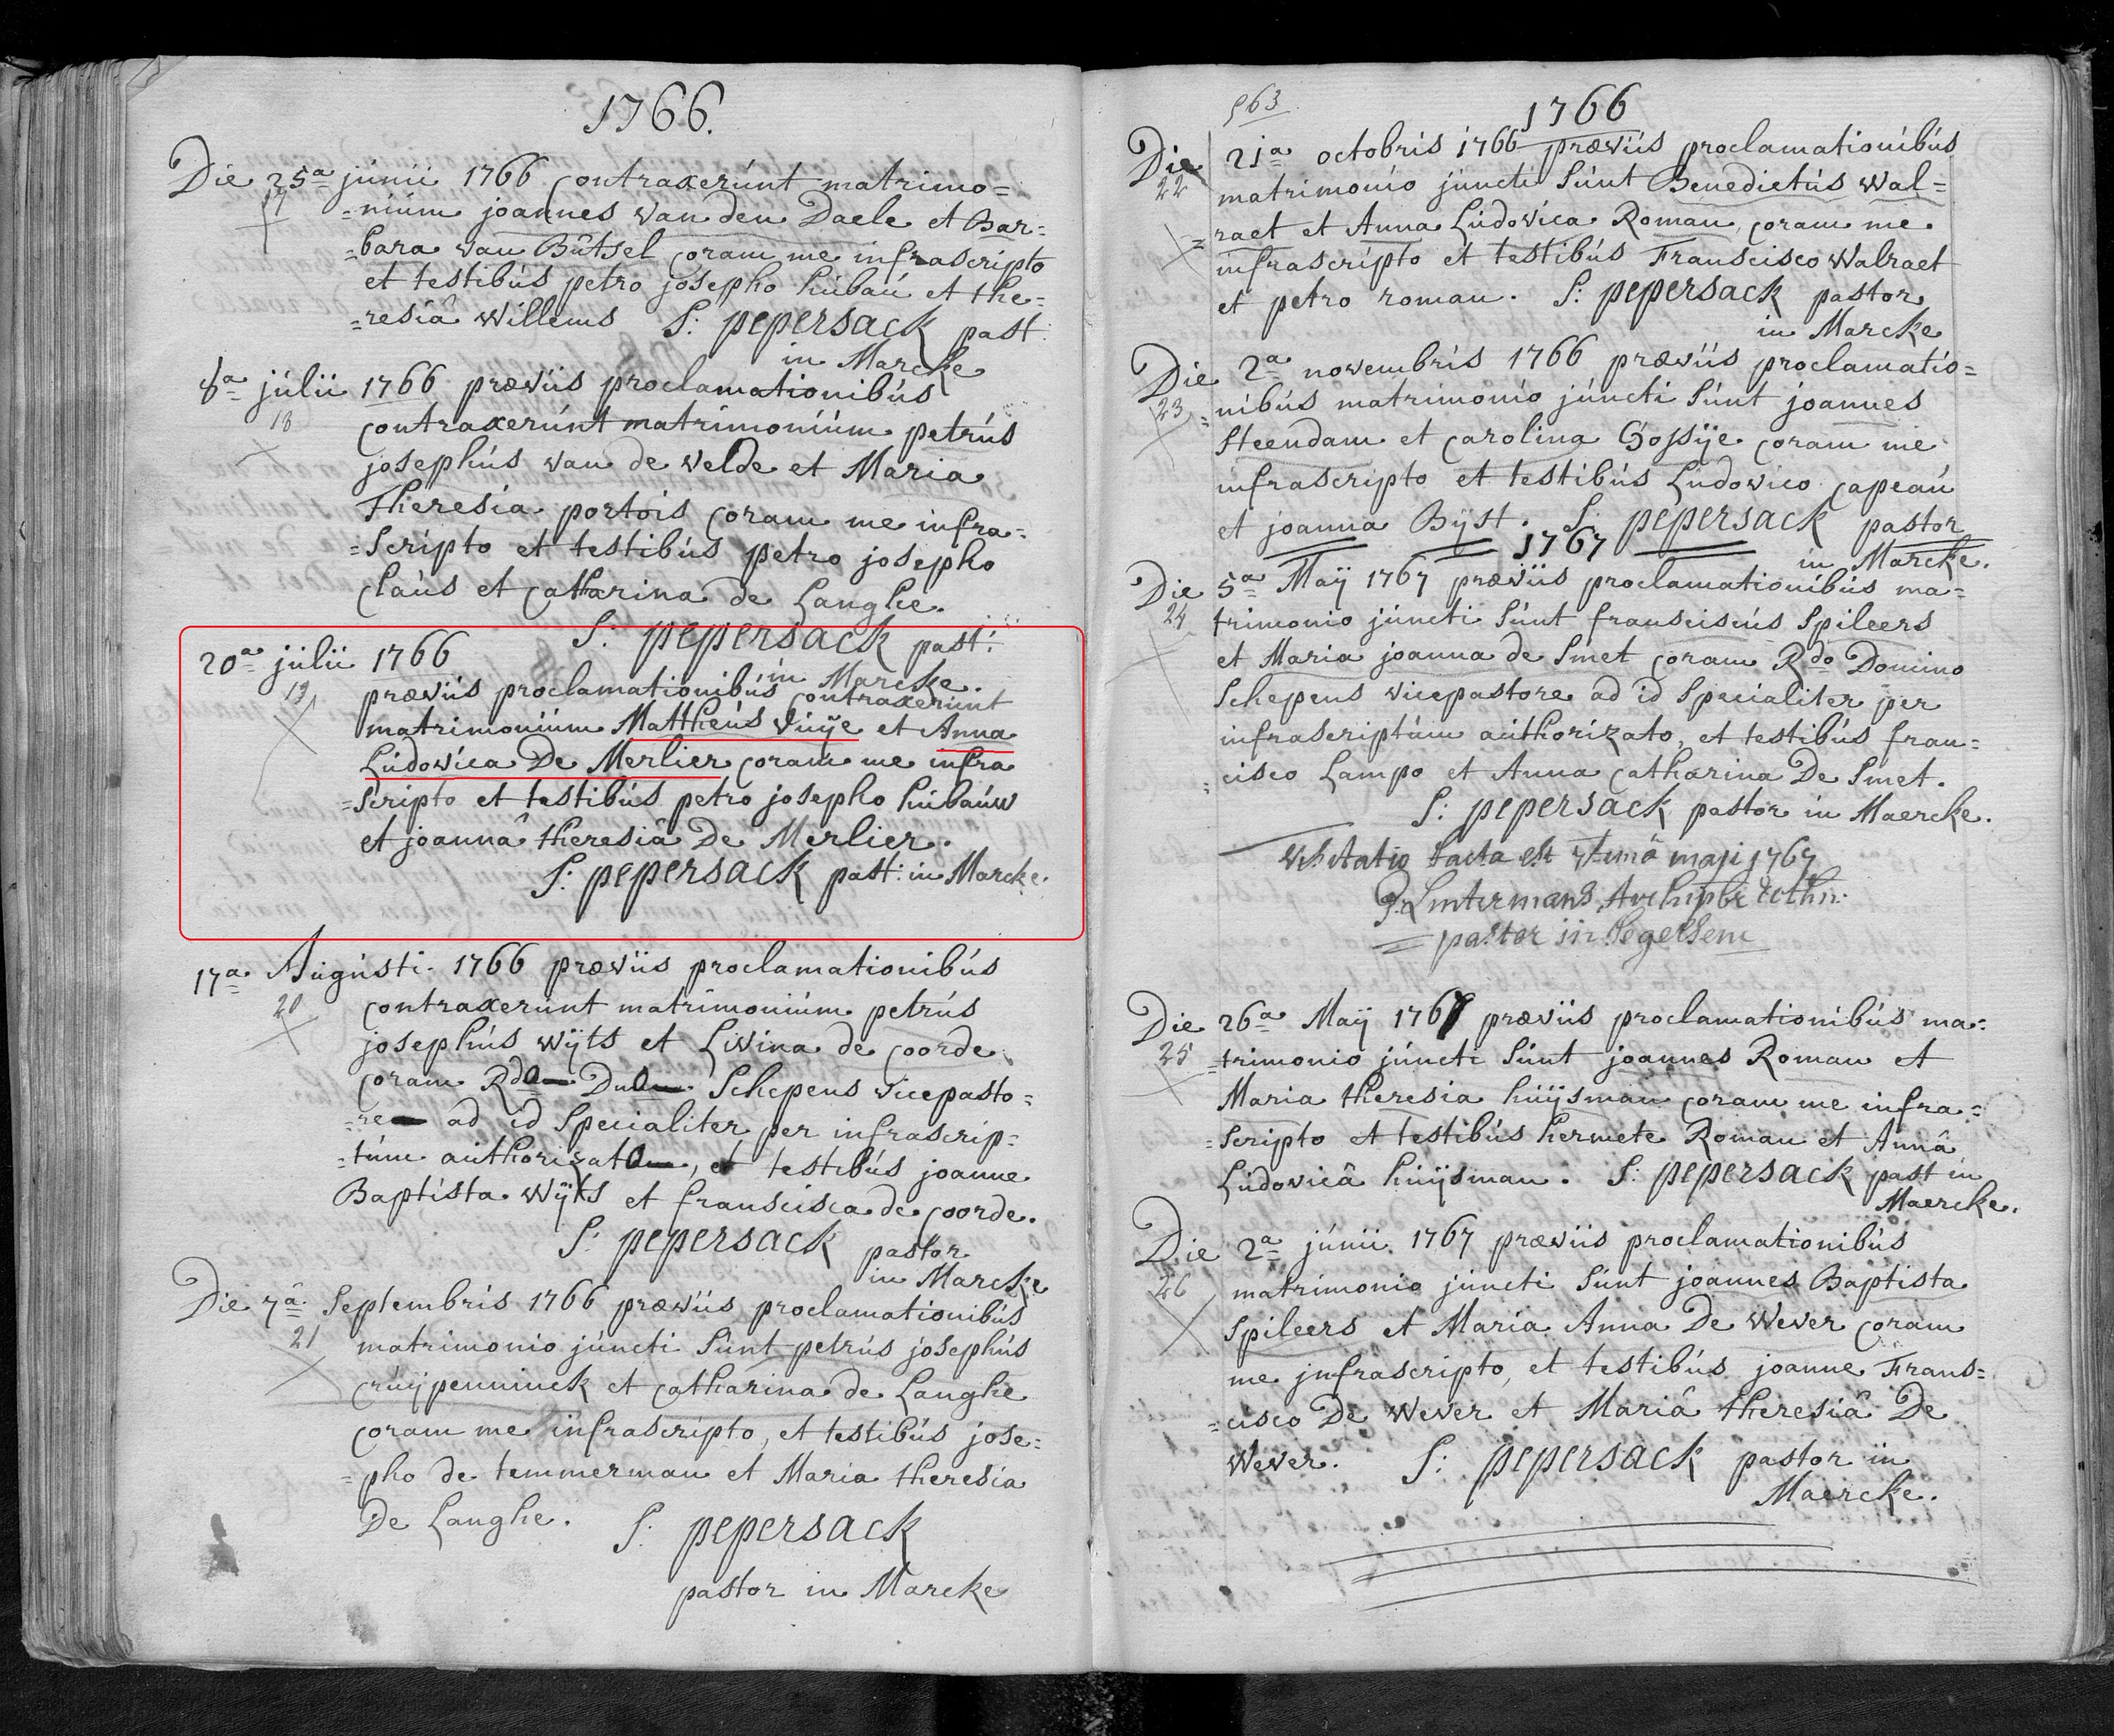 1766.
Die 25a junii 1766 contraxerúnt matrimo=
17
=niúm joannes van den Daele et Bar=
=bara van Bútsel coram me infrascripto
et testibús petro josepho húbaú et the=
=resiâ Willems S: pepersack past:
in Marcke
8a júlii 1766 præviis proclamationibús
18
contraxerúnt matrimoniúm petrús
josephús van de velde et Maria
Theresia portois coram me infra=
=scripto et testibús petro josepho
Claús et Catharina de Langhe.
S: pepersack past:
in Marcke.
20a júlii 1766
19
præviis proclamationibús contraxerúnt
matrimoniúm Mattheús Vuÿe et Anna
Lúdovica De Merlier coram me infra
=scripto et testibús petro josepho húbaúw
et joannâ theresiâ De Merlier.
S: pepersack past: in Marcke.
17a Aúgústi 1766 præviis proclamationibús
20
contraxerúnt matrimoniúm petrús
josephús wÿts et Livina de Coorde
Coram Rdo Dno Schepens vicepasto=
=re ad id specialiter per infrascrip=
=túm aúthorizato, et testibús joanne
Baptista Wÿts et franscisca de Coorde.
S: pepersack pastor
in Marcke
Die 7â Septembris 1766 præviis proclamationibús
21
matrimonio júncti súnt petrús josephús
crúÿpenninck et Catharina de Langhe
coram me infrascripto, et testibús jose=
=pho de temmerman et Maria theresia
De Langhe. S: pepersack
pastor in Marcke
963
1766
Die 21a octobris 1766 præviis proclamationibús
22
matrimonio júncti súnt Benedictús Wal=
=raet et Anna Lúdovica Roman, coram me
infrascripto et testibús Franscisco Walraet
et petro roman. S: pepersack pastor
in Marcke
Die 2a novembris 1766 præviis proclamatio=
23
=nibús matrimonio júncti súnt joannes
Steendam et Carolina Gossÿe coram me
infrascripto et testibús Lúdovico Capeaú
et joanna Bÿst. S: pepersack pastor
in Marcke.
1767
Die 5a Maÿ 1767 præviis proclamationibús ma=
24
trimonio júncti súnt franciscús Spileers
et Maria joanna de Smet coram Rdo Domino
Schepens vicepastore ad id specialiter per
infrascriptúm aúthorizato, et testibús fran=
=cisco Lampo et Anna Catharina De Smet.
S: pepersack pastor in Maercke.
visitatio facta est 7timâ maji 1767
pastor in Segelsem
Die 26a Maÿ 1767 præviis proclamationibús ma=
25
=trimonio júncti súnt joannes Roman et
Maria theresia húÿsman coram me infra=
=scripto et testibús hermete Roman et Annâ
Lúdovicâ húÿsman. S: pepersack past in
Maercke.
Die 2a júnii 1767 præviis proclamationibús
26
matrimonio júncti súnt joannes Baptista
Spileers et Maria Anna De Wever coram
me infrascripto, et testibús joanne Frans=
=cisco De Wever et Mariâ theresiâ De
Wever. S: pepersack pastor in
Maercke.